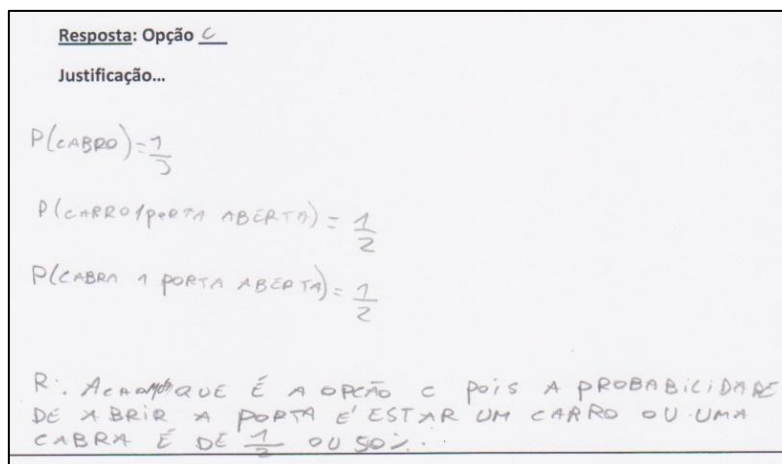 Resposta: Opção C
Justificação...
P(CARRO)=1/3
P(CARRO 1 PORTA ABERTA) = 1/2
P(CABRA 1 PORTA ABERTA) = 1/2
R: QUE É A OPÇÃO C POIS A PROBABILIDADE
DE ABRIR A PORTA E ESTAR UM CARRO OU UMA
CABRA É DE 1/2 OU 50%.